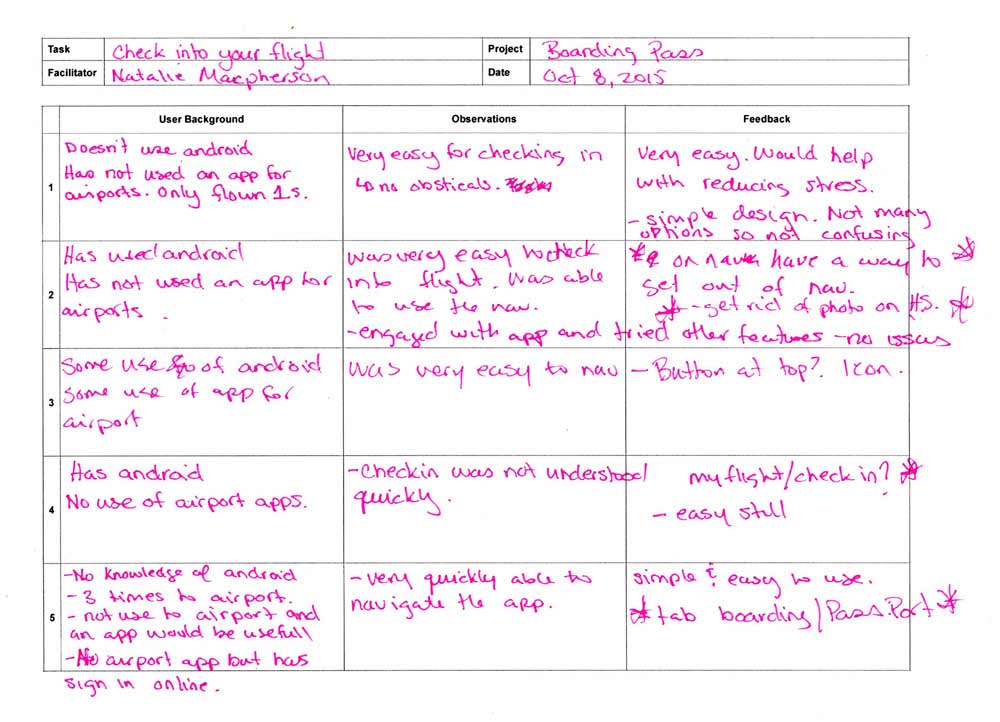 Task Check into your flight Project Boarding Pass
Facilitator Natalie Macpherson Date Oct 8, 2015
User Background Observations Feedback
1
Doesn't use android
Has not used an app for
airports. Only flown 1s.
Very easy for checking in
↳ no obsticals.
Very easy. Would help
with reducing stress.
- simple design. Not many
options so not confusing
2
Has used android
Has not used an app for
airports.
was very easy to check
into flight. Was able
to use the nav.
- engaged with app and tried other features - no issues
* on nav have a way to *
get out of nav.
* - get rid of photo on HS. *
3
Some use of android
Some use of app for
airport
Was very easy to nav
- Button at top? Icon.
4
Has android
No use of airport apps.
- Checkin was not understood
quickly.
my flight/check in? *
- easy still
5
- No knowledge of android
- 3 times to airport.
- not use to airport and
an app would be usefull
- No airport app but has
sign in online.
- very quickly able to
navigate the app.
simple & easy to use.
* tab boarding/Pass.Port *